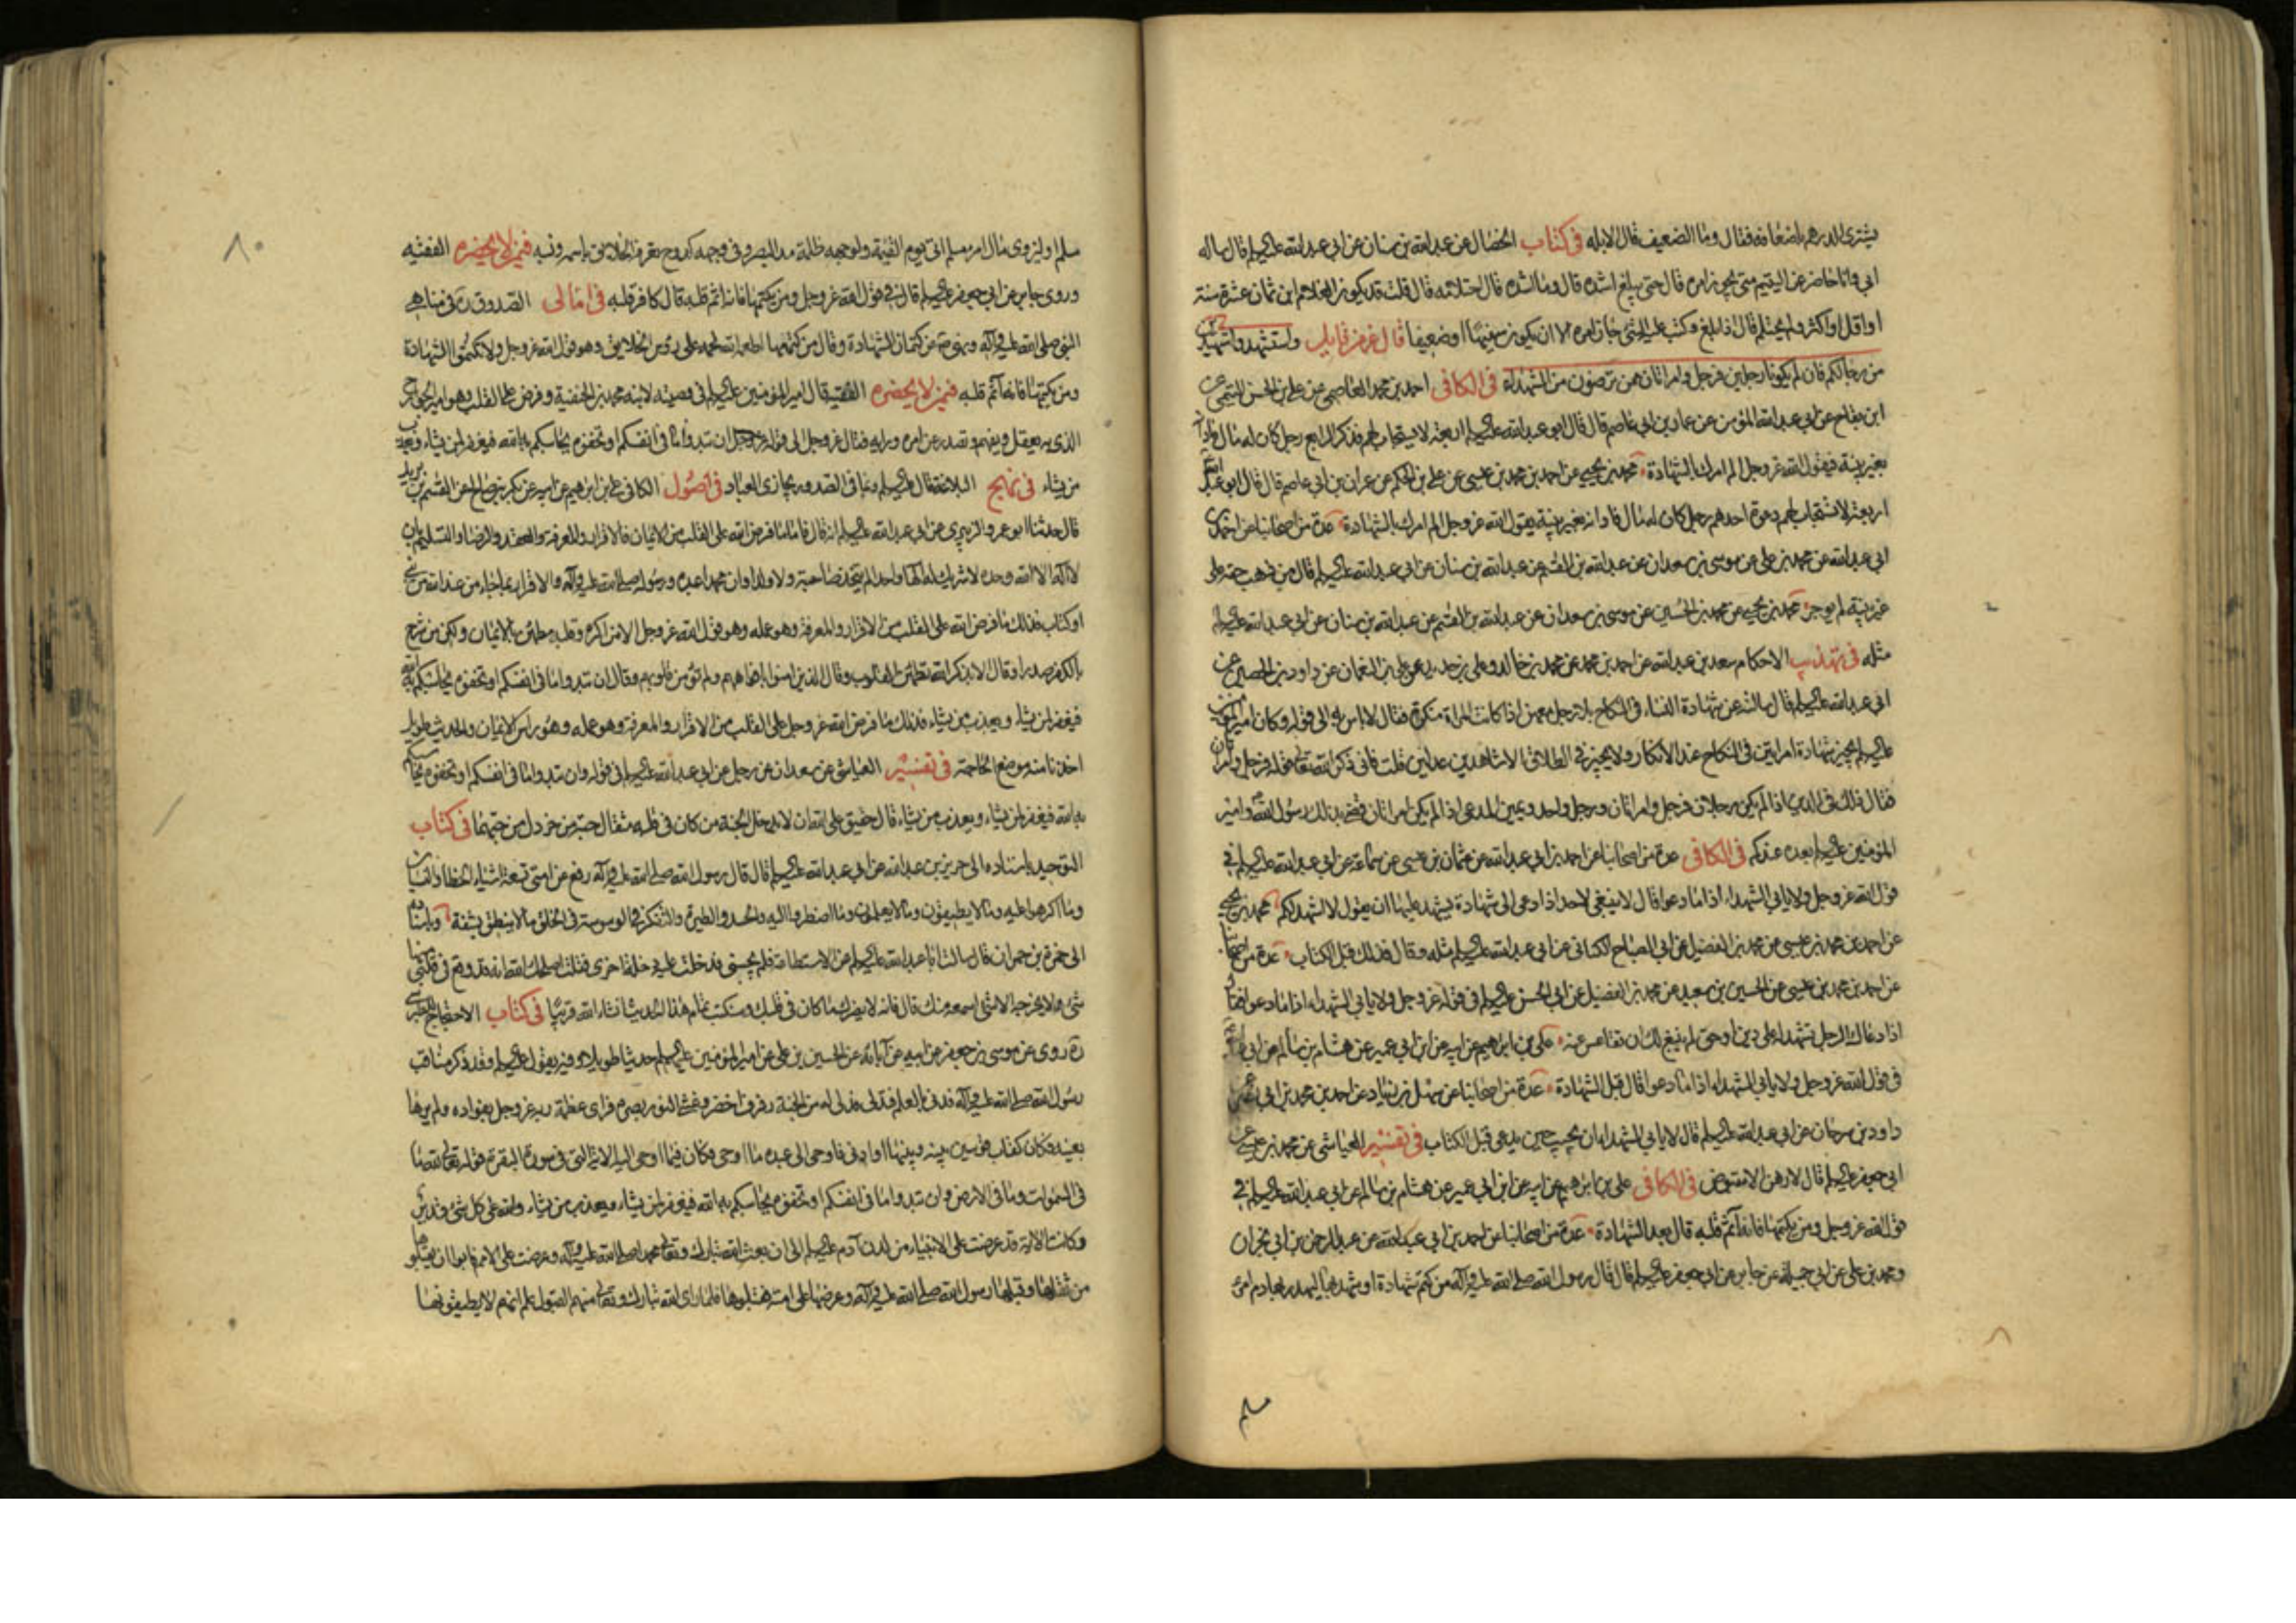 يشترى الدرهم باضعافه فقال وما الضعيف قال الابله في كتاب الخصال عن عبد الله بن سنان عن ابي عبد الله عليه السلم قال ساله
ابي وانا حاضر عن اليتيم متى يجوز امره قال حتى يبلغ اشده قال وما اشده قال احتلامه قال قلت قد يكون الغلام ابن ثمان عشرة سنة
او اقل او اكثر ولم يحتلم قال اذا بلغ وكتب عليه الشئ جاز امره الا ان يكون سفيها او ضعيفا قال عز من قايل واستشهدوا شهيدين
من رجالكم فان لم يكونا رجلين فرجل وامراتان ممن ترضون من الشهداء في الكافى احمد بن محمد العاصمى عن على بن الحسن التيمى عن
ابن بقاح عن ابي عبد الله المؤمن عن عمار بن ابي عاصم قال قال ابو عبد الله عليه السلم اربعة لا يستجاب لهم فذكر الرابع رجل كان له مال فادانه
بغير بينة فيقول الله عز وجل الم امرك بالشهادة محمد بن يحيى عن احمد بن محمد بن عيسى عن على بن الحكم عن عمران بن ابي عاصم قال قال ابو عبد الله
اربعة لا تستجاب لهم دعوة احدهم رجل كان له مال فادانه بغير بينة يقول الله عز وجل الم امرك بالشهادة عدة من اصحابنا عن احمد بن
ابي عبد الله عن محمد بن على عن موسى بن سعدان عن عبد الله بن القسم عن عبد الله بن سنان عن ابي عبد الله عليه السلم قال من ذهب حقه على
غير بينة لم يوجر محمد بن يحيى عن محمد بن الحسين عن موسى بن سعدان عن عبد الله بن القسم عن عبد الله بن سنان عن ابي عبد الله عليه السلم
مثله في تهذيب الاحكام سعد بن عبد الله عن احمد بن محمد عن محمد بن خالد وعلى بن حديد عن على بن النعمان عن داود بن الحصين عن
ابي عبد الله عليه السلم قال سالته عن شهادة النساء في النكاح بلا رجل معهن اذا كانت المراة منكرة فقال لا باس به الى قوله وكان امير المؤمنين
عليه السلم يجيز شهادة امراتين في النكاح عند الانكار ولا يجيز في الطلاق الا شاهدين عدلين قلت فانى ذكر الله تعالى قوله فرجل وامراتان
فقال ذلك في الدين اذا لم يكن رجلان فرجل وامراتان ورجل واحد ويمين المدعى اذا لم يكن امراتان قضى بذلك رسول الله وامير
المؤمنين عليه السلم بعده عندكم في الكافى عدة من اصحابنا عن احمد بن ابي عبد الله عن عثمان بن عيسى عن سماعة عن ابي عبد الله عليه السلم في
قول الله عز وجل ولا يابى الشهداء اذا ما دعوا قال لا ينبغي لاحد اذا دعى الى شهادة يشهد عليها ان يقول لا اشهد لكم محمد بن يحيى
عن احمد بن محمد بن عيسى عن محمد بن الفضيل عن ابي الصباح الكنانى عن ابي عبد الله عليه السلم مثله وقال فذلك قبل الكتاب عدة من اصحابنا
عن احمد بن محمد بن عيسى عن الحسين بن سعيد عن محمد بن الفضيل عن ابي الحسن عليه السلم في قوله عز وجل ولا يابى الشهداء اذا ما دعوا فقال
اذا دعاك الرجل تشهد له على دين او حق لم ينبغ لك ان تقاعس عنه على بن ابراهيم عن ابيه عن ابن ابي عمير عن هشام بن سالم عن ابي
في قول الله عز وجل ولا يابى الشهداء اذا ما دعوا قال قبل الشهادة عدة من اصحابنا عن سهل بن زياد عن احمد بن محمد بن ابي نصر عن
داود بن سرحان عن ابي عبد الله عليه السلم قال لا يابى الشهداء ان يجيب حين يدعى قبل الكتاب في تفسير العياشى عن محمد بن عيسى عن
ابي جعفر عليه السلم قال لا رهن الا مقبوض في الكافى على بن ابراهيم عن ابيه عن ابن ابي عمير عن هشام بن سالم عن ابي عبد الله عليه السلم في
قول الله عز وجل ومن يكتمها فانه آثم قلبه قال بعد الشهادة عدة من اصحابنا عن احمد بن ابي عبد الله عن عبد الرحمن بن ابي نجران
ومحمد بن على عن ابي جميلة عن جابر عن ابي جعفر عليه السلم قال قال رسول الله صلى الله عليه وآله من كتم شهادة او شهد بها ليهدر بها دم امرئ
مسلم
مسلم او ليزوى مال امرء مسلم اتى يوم القيمة ولوجهه ظلمة مد البصر وفي وجهه كدوح يعرفه الخلايق باسمه ونسبه فيمن لا يحضره الفقيه
وروى جابر عن ابي جعفر عليه السلم قال في قول الله عز وجل ومن يكتمها فانه اثم قلبه قال كافر قلبه في امالى الصدوق ره في مناهى
النبى صلى الله عليه وآله ونهى عن كتمان الشهادة وقال من كتمها اطعمه الله لحمه على رؤس الخلايق وهو قول الله عز وجل ولا تكتموا الشهادة
ومن يكتمها فانه آثم قلبه فيمن لا يحضره الفقيه قال امير المؤمنين عليه السلم في وصيته لابنه محمد بن الحنفية وفرض على القلب وهو امير الجوارح
الذي به يعقل ويفهم وتصدر عن امره ورايه فقال عز وجل الى قوله عز وجل ان تبدوا ما في انفسكم او تخفوه يحاسبكم به الله فيغفر لمن يشاء ويعذب
من يشاء في نهج البلاغة قال عليه السلم وبما في الصدور يجازى العباد في اصول الكافى على بن ابراهيم عن ابيه عن بكر بن صالح عن القسم بن بريد
قال حدثنا ابو عمرو الزبيرى عن ابي عبد الله عليه السلم انه قال فاما ما فرض الله على القلب من الايمان فالاقرار والمعرفة والعقد والرضا والتسليم بان
لا اله الا الله وحده لا شريك له الها واحدا لم يتخذ صاحبة ولا ولدا وان محمدا عبده ورسوله صلى الله عليه وآله والاقرار بما جاء من عند الله من نبى
او كتاب فذلك ما فرض الله على القلب من الاقرار والمعرفة وهو عمله وهو قول الله عز وجل الا من اكره وقلبه مطمئن بالايمان ولكن من شرح
بالكفر صدرا وقال الا بذكر الله تطمئن القلوب وقال الذين امنوا بافواههم ولم تؤمن قلوبهم وقال ان تبدوا ما في انفسكم او تخفوه يحاسبكم به الله
فيغفر لمن يشاء ويعذب من يشاء فذلك ما فرض الله عز وجل على القلب من الاقرار والمعرفة وهو عمله وهو راس الايمان والحديث طويل
اخذنا منه موضع الحاجة في تفسير العياشى عن سعدان عن رجل عن ابي عبد الله عليه السلم في قوله وان تبدوا ما في انفسكم او تخفوه يحاسبكم
به الله فيغفر لمن يشاء ويعذب من يشاء قال حقيق على الله ان لا يدخل الجنة من كان في قلبه مثقال حبة من خردل من حبهما في كتاب
التوحيد باسناده الى حريز بن عبد الله عن ابي عبد الله عليه السلم قال قال رسول الله صلى الله عليه وآله رفع عن امتى تسعة اشياء الخطا والنسيان
وما اكرهوا عليه وما لا يطيقون وما لا يعلمون وما اضطروا اليه والحسد والطيرة والتفكر في الوسوسة في الخلق ما لا ينطق بشفة وباسناده
الى حمزة بن حمران قال سالت ابا عبد الله عليه السلم عن الاستطاعة فلم يجبنى فدخلت عليه دخلة اخرى فقلت اصلحك الله انه قد وقع في قلبى منها
شئ ولا يخرجه الا شئ اسمعه منك قال فانه لا يضرك ما كان في قلبك وستكتب تمام هذا الحديث انشاء الله قريبا في كتاب الاحتجاج للطبرسى
ره روى عن موسى بن جعفر عن ابيه عن آبائه عن الحسين بن على عن امير المؤمنين عليهم السلم حديثا طويلا وفيه يقول عليه السلم وقد ذكر مناقب
رسول الله صلى الله عليه وآله فدنى بالعلم فتدلى فدلى له من الجنة رفرف اخضر وغشى النور بصره فراى عظمة ربه عز وجل بفواده ولم يرها
بعينه فكان كقاب قوسين بينه وبينها او ادنى فاوحى الى عبده ما اوحى فكان فيما اوحى اليه الاية التى في سورة البقرة قوله تعالى لله ما
في السموات وما في الارض وان تبدوا ما في انفسكم او تخفوه يحاسبكم به الله فيغفر لمن يشاء ويعذب من يشاء والله على كل شئ قدير
وكانت الاية قد عرضت على الانبياء من لدن آدم عليه السلم الى ان بعث الله تبارك وتعالى محمدا صلى الله عليه وآله وعرضت على الامم فابوا ان يقبلوها
من ثقلها وقبلها رسول الله صلى الله عليه وآله وعرضها على امته فقبلوها فلما راى الله تبارك وتعالى منهم القبول علم انهم لا يطيقونها
٨٠